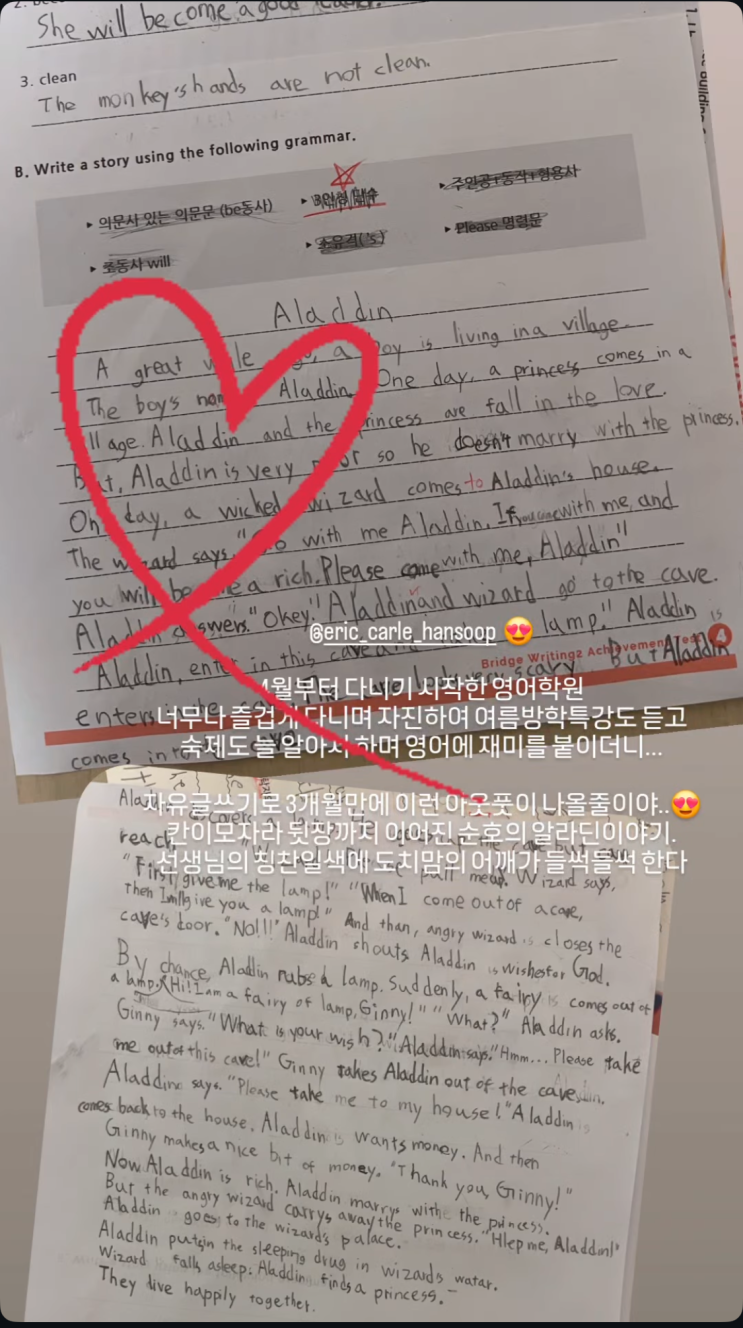 She will become a good leader.
3. clean
The monkey's hands are not clean.
B. Write a story using the following grammar.
▸ 의문사 있는 의문문 (be동사) ▸ 3인칭 단수 ▸ 주인공+동작+형용사
▸ 조동사 will ▸ 소유격('s) ▸ Please 명령문
Aladdin
A great while ago, a boy is living in a village.
The boy's name Aladdin. One day, a princess comes in a
village. Aladdin and the princess are fall in the love.
But, Aladdin is very poor so he doesn't marry with the princess.
One day, a wicked wizard comes to Aladdin's house.
The wizard says. "Go with me Aladdin. If you come with me, and
you will become a rich. Please come with me, Aladdin"
Aladdin answers. "Okey!" Aladdin and wizard go to the cave.
@eric_carle_hansoop 😍
Aladdin, enter in this cave lamp." Aladdin is
Bridge Writing2 Achievement Test 4
enters in the very scary But Aladdin
comes in to
4월부터 다니기 시작한 영어학원
너무나 즐겁게 다니며 자진하여 여름방학특강도 듣고
숙제도 늘 알아서 하며 영어에 재미를 붙이더니...
자유글쓰기로 3개월만에 이런 아웃풋이 나올줄이야..😍
칸이모자라 뒷장까지 이어진 순호의 알라딘이야기.
선생님의 칭찬일색에 도치맘의 어깨가 들썩들썩 한다
reach. Wizard says,
"First give me the lamp!" "When I come out of a cave,
then I will give you a lamp!" And than, angry wizard is closes the
cave's door. "No!!!" Aladdin shouts. Aladdin is wishes for God.
By chance, Aladdin rubs a lamp. Suddenly, a fairy is comes out of
a lamp. "Hi! I am a fairy of lamp, Ginny!" "What?" Aladdin asks.
Ginny says. "What is your wish?" Aladdin says. "Hmm... Please take
me out of this cave!" Ginny takes Aladdin out of the cave.
Aladdin says. "Please take me to my house!" Aladdin is
comes back to the house. Aladdin is wants money. And then
Ginny makes a nice bit of money. "Thank you, Ginny!"
Now Aladdin is rich. Aladdin marrys with the princess.
But the angry wizard carrys away the princess. "Hlep me, Aladdin!"
Aladdin goes to the wizard's palace.
Aladdin puts in the sleeping drug in wizard's watar.
Wizard falls asleep. Aladdin finds a princess.
They live happily together.